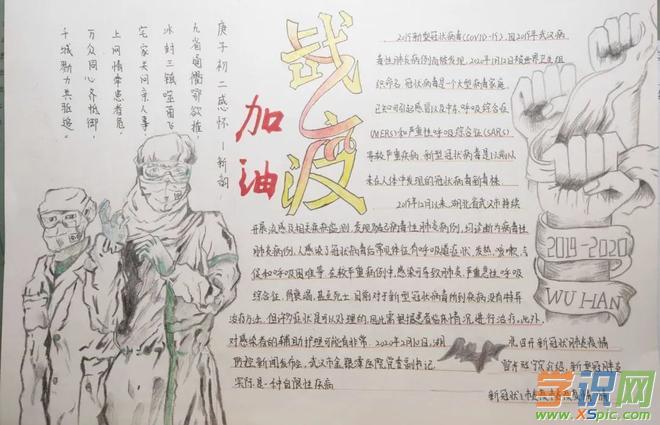 庚子初二感怀—新韵
九省通衢
冰封三镇
宅家共问京人事
上网情牵患者危
万众同心齐抵御
千城勠力共驱追
战疫
加油
2019新型冠状病毒(COVID-19),因2019年武汉病
毒性肺炎病例而被发现,2020年1月12日被世界卫生组
织命名。冠状病毒是一个大型病毒家庭,
已知可引起感冒以及中东呼吸综合征
(MERS)和严重性呼吸综合征(SARS)
等较严重疾病。新型冠状病毒是以前从
未在人体中发现的冠状病毒新毒株
2019年12月以来,湖北省武汉市持续
开展流感及相关疾病监测,发现多起病毒性肺炎病例,均诊断为病毒性
肺炎病例。人感染了冠状病毒后常见体征有呼吸道症状、发热、咳嗽、气
促和呼吸困难等。在较严重病例中,感染可导致肺炎、严重急性呼吸
综合征、肾衰竭,甚至死亡。目前对于新型冠状病毒所致疾病没有特异
治疗方法。但许多症状是可以处理的,因此需根据患者临床情况进行治疗。此外,
对感染者的辅助护理可能有非常。2020年2月10日,湖
北召开新冠状肺炎疫情
防控新闻发布会,武汉市金银潭医院党委副书记
介绍,新型冠肺炎
实际是一种自限性疾病
2019-2020
WU HAN
学识网
www.xspic.com